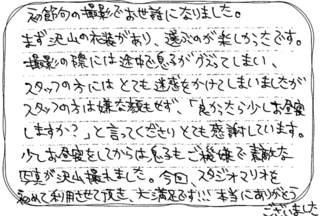 初節句の撮影でお世話になりました。
まず沢山の衣装があり、選ぶのが楽しかったです。
撮影の際には途中で息子がぐずってしまい、
スタッフの方にはとても迷惑をかけてしまいましたが
スタッフの方は嫌な顔もせず、「良かったら少しお昼寝
しますか?」と言ってくださりとても感謝しています。
少しお昼寝をしてからは息子もご機嫌で素敵な
写真が沢山撮れました。今回、スタジオマリオを
初めて利用させて頂き、大満足です!!!本当にありがとう
ございました